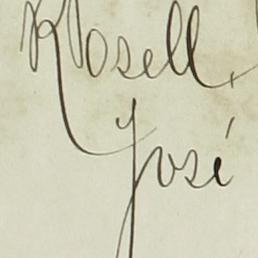 Rosell,
José